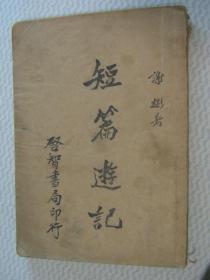 謝彬著
短篇遊記
啓智書局印行